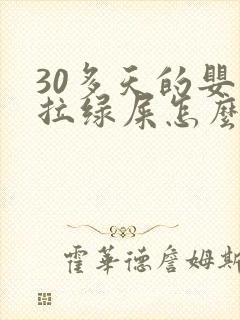 30多天的婴
拉绿屎怎麽
霍華德詹姆斯